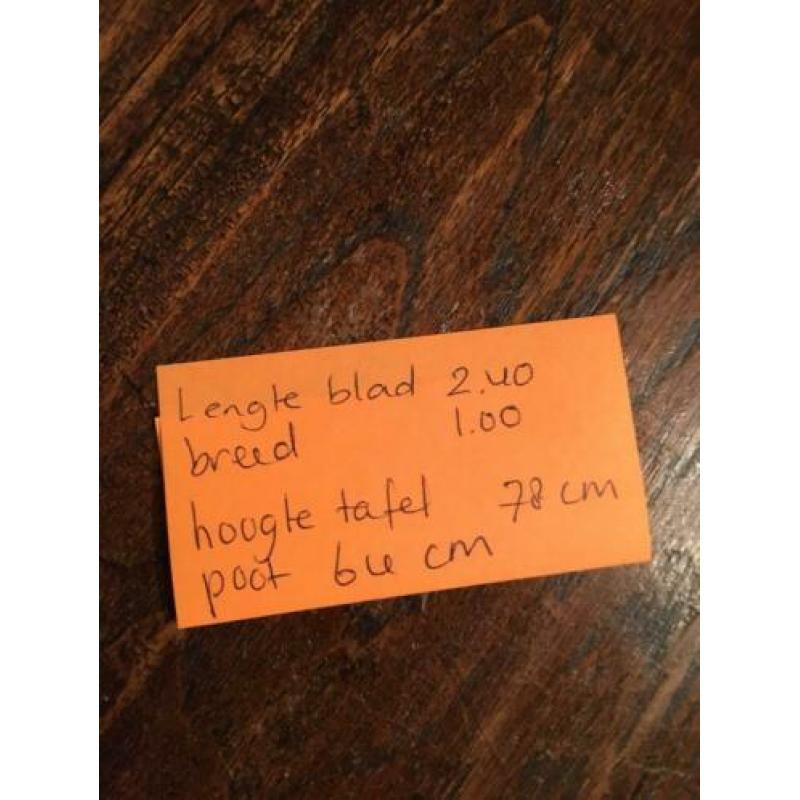 Lengte blad 2.40
breed 1.00
hoogte tafel 78 cm
poot 64 cm